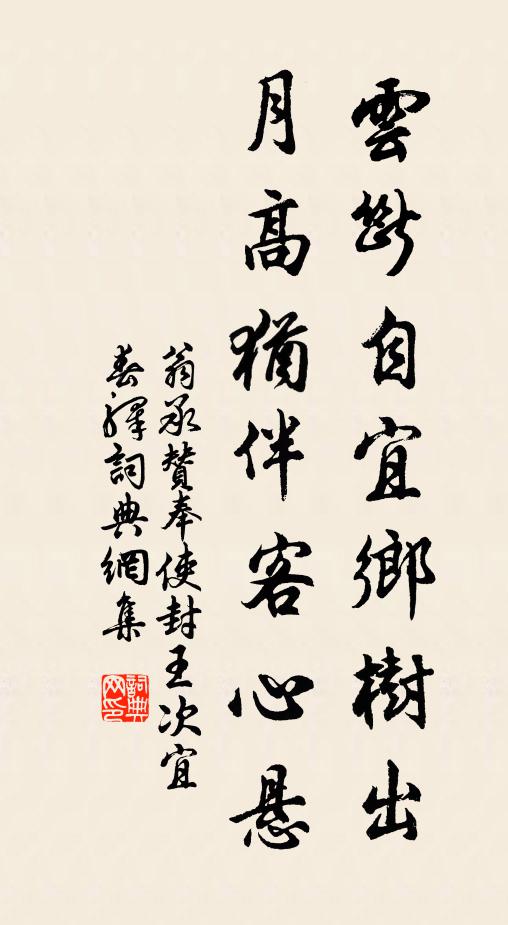 雲斷自宜鄉樹出
月高猶伴客心悬
翁承贊奉使封王次宜
春譯詞典網集
詞典
网印